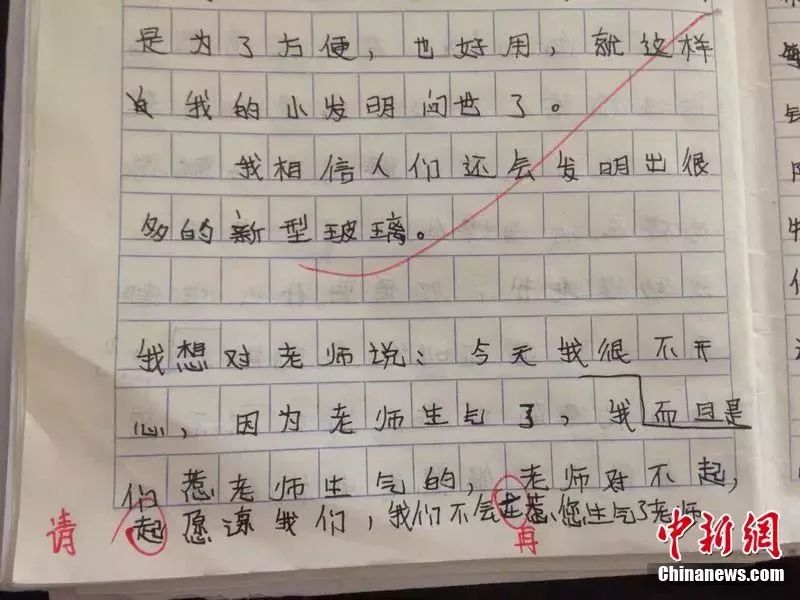 是为了方便，也好用，就这样
我的小发明问世了。
我相信人们还会发明出很
多的新型玻璃。
我想对老师说：今天我很不开
心，因为老师生气了，而且是我
们惹老师生气的，老师对不起，
请起愿谅我们，我们不会在惹您生气了老师
再
中新网
Chinanews.com